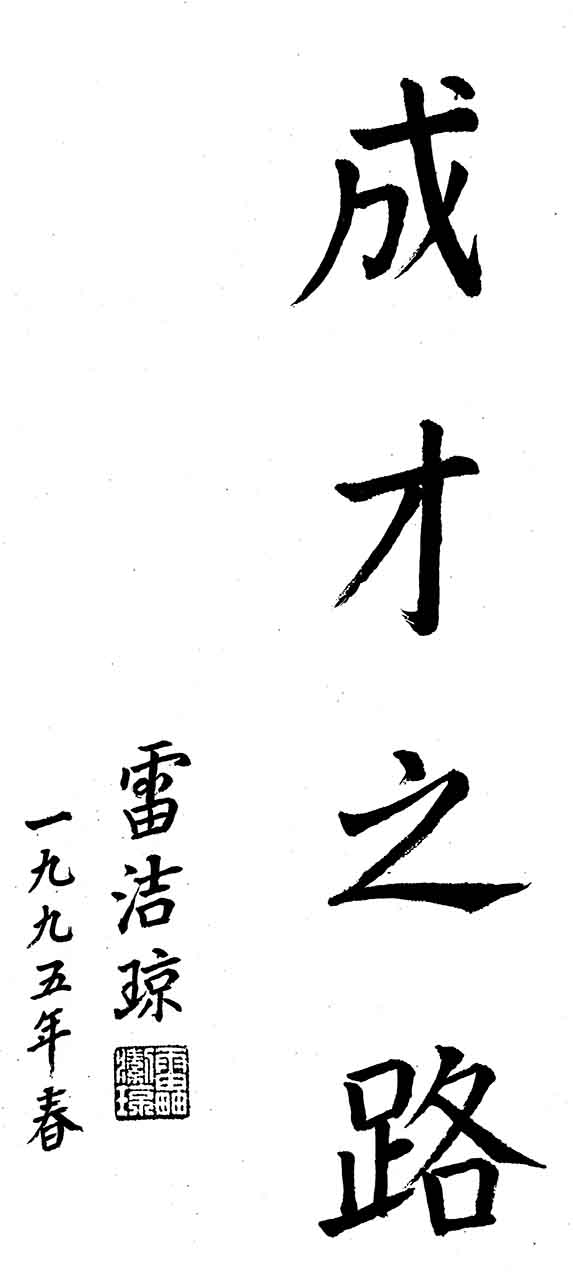 成才之路
雷洁琼
一九九五年春